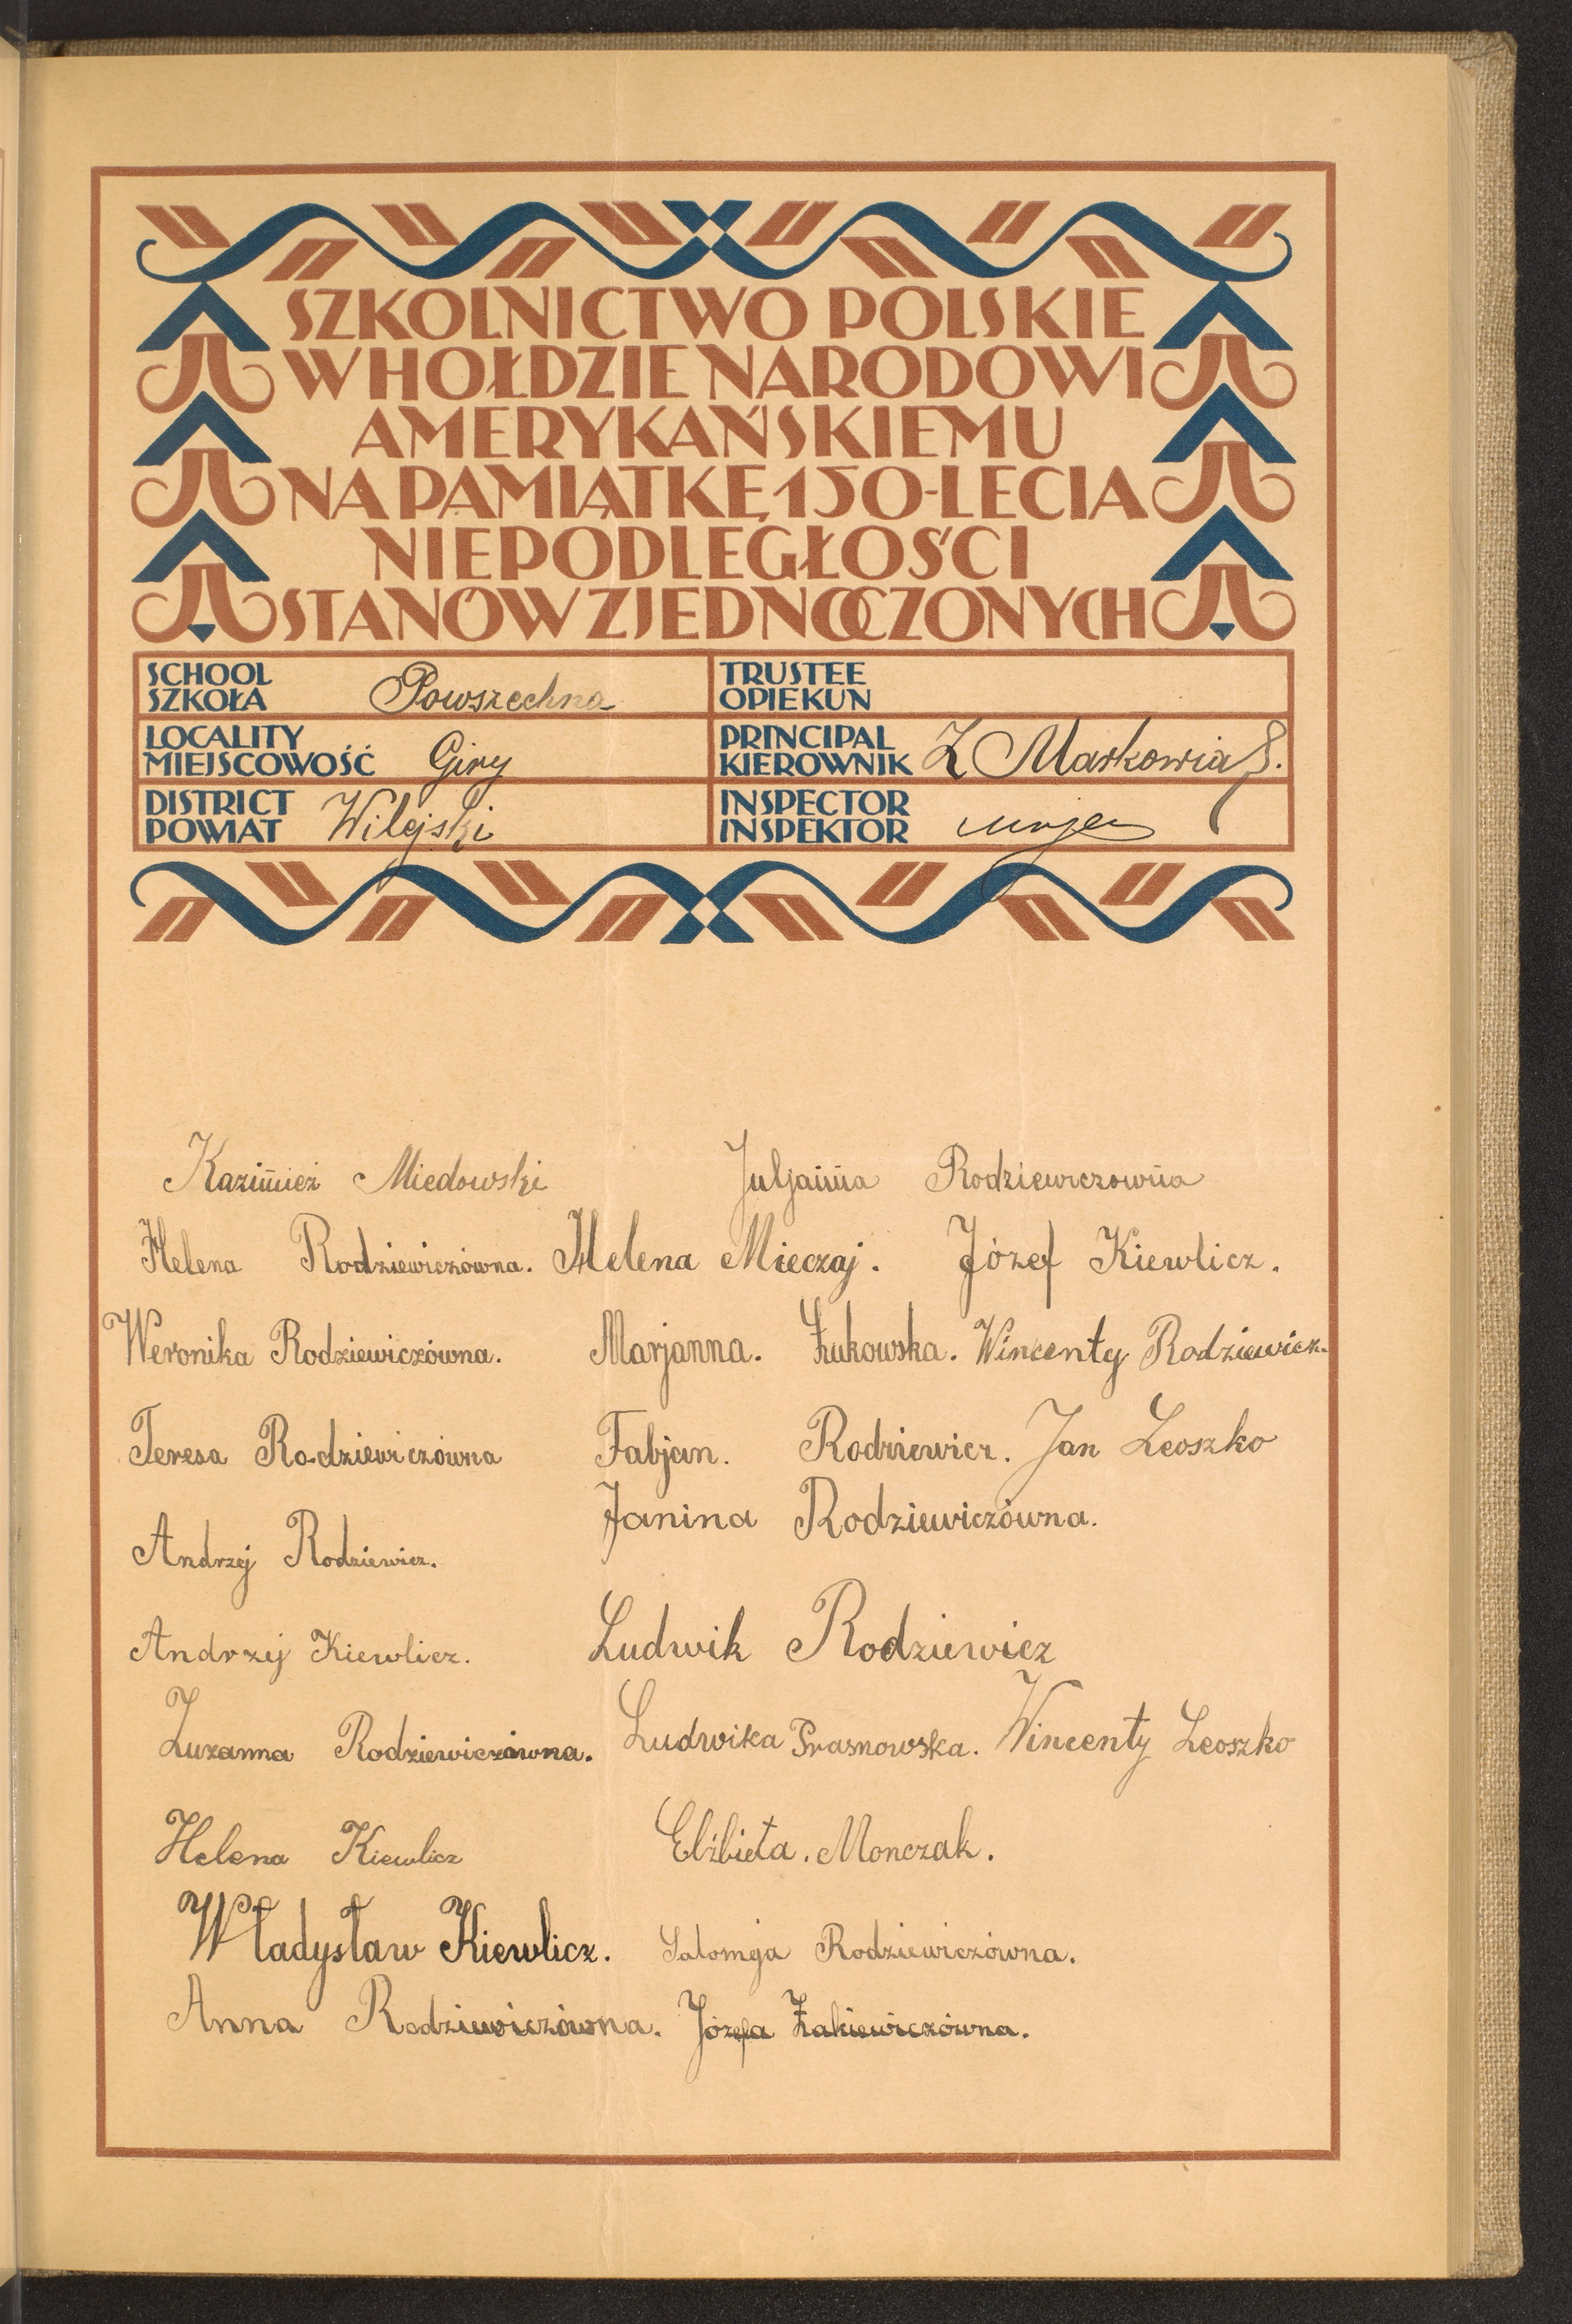 SZKOLNICTWO POLSKIE
W HOŁDZIE NARODOWI
AMERYKAŃSKIEMU
NA PAMIĄTKĘ 150-LECIA
NIEPODLEGŁOŚCI
STANÓW ZJEDNOCZONYCH
SCHOOL
SZKOŁA Powszechna
TRUSTEE
OPIEKUN
LOCALITY
MIEJSCOWOŚĆ Giry
PRINCIPAL
KIEROWNIK
DISTRICT
POWIAT Wilejski
INSPECTOR
INSPEKTOR
Kazimież Miedowski Juljanna Rodziewiczowna
Helena Rodziewiczówna. Helena Mieczaj. Józef Kiewlicz.
Weronika Rodziewiczówna. Marjanna. Żukowska. Wincenty Rodziewicz.
Teresa Rodziewiczówna Fabjan. Rodziewicz. Jan Leoszko
Janina Rodziewiczówna.
Andrzej Rodziewicz.
Andrzej Kiewlicz. Ludwik Rodziewicz
Zuzanna Rodziewiczówna. Ludwika Prasnowska. Wincenty Leoszko
Helena Kiewlicz Elżbieta. Monczak.
Władysław Kiewlicz. Salomeja Rodziewiczówna.
Anna Rodziewiczówna. Józefa Żakiewiczówna.